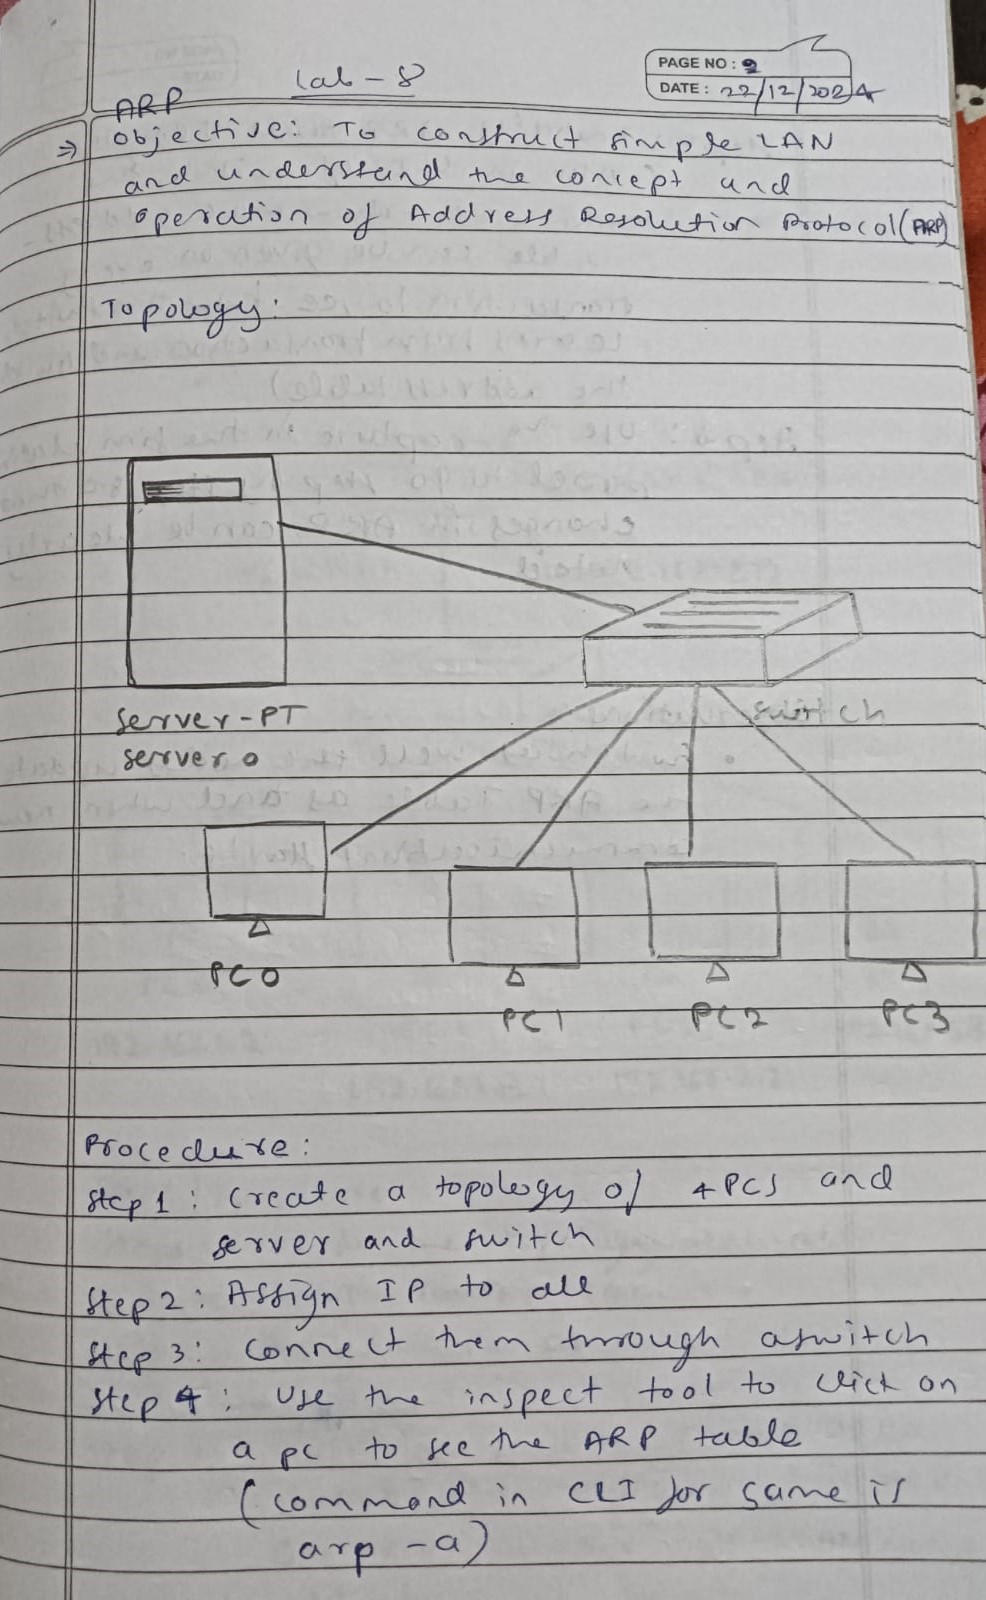 Lab - 8
PAGE NO:
DATE: 22/12/2024
ARP
⇒ Objective: To construct simple LAN
and understand the concept and
operation of Address Resolution Protocol (ARP)
Topology:
Server-PT
Server 0
switch
PC0
PC1
PC2
PC3
Procedure:
Step 1: Create a topology of 4 PCs and
server and switch
Step 2: Assign IP to all
Step 3: Connect them through a switch
Step 4: Use the inspect tool to click on
a pc to see the ARP table
(command in CLI for same is
arp -a)